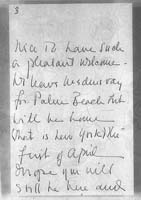 3
nice to have such
a pleasant welcome.
We leave Wednesday
for Palm Beach but
will be home
that is New York the
first of April
hope you will
still be here and